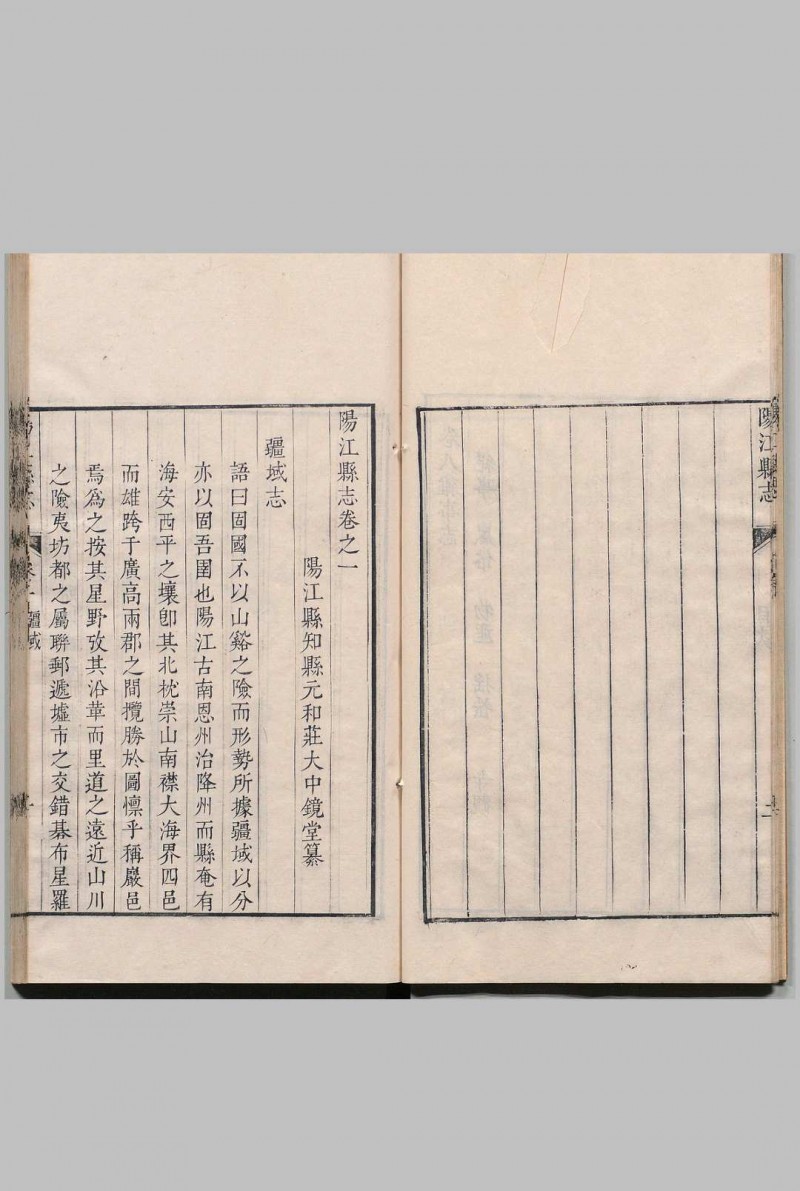 陽江縣志
陽江縣志卷之一
陽江縣知縣元和莊大中鏡堂纂
疆域志
語曰固國不以山谿之險而形勢所據疆域以分
亦以固吾圉也陽江古南恩州治降州而縣奄有
海安西平之壤卽其北枕崇山南襟大海界四邑
而雄跨于廣高兩郡之間攬勝於圖懍乎稱巖邑
焉爲之按其星野攷其沿革而里道之遠近山川
之險夷坊都之屬聯郵遞墟市之交錯棊布星羅
疆域